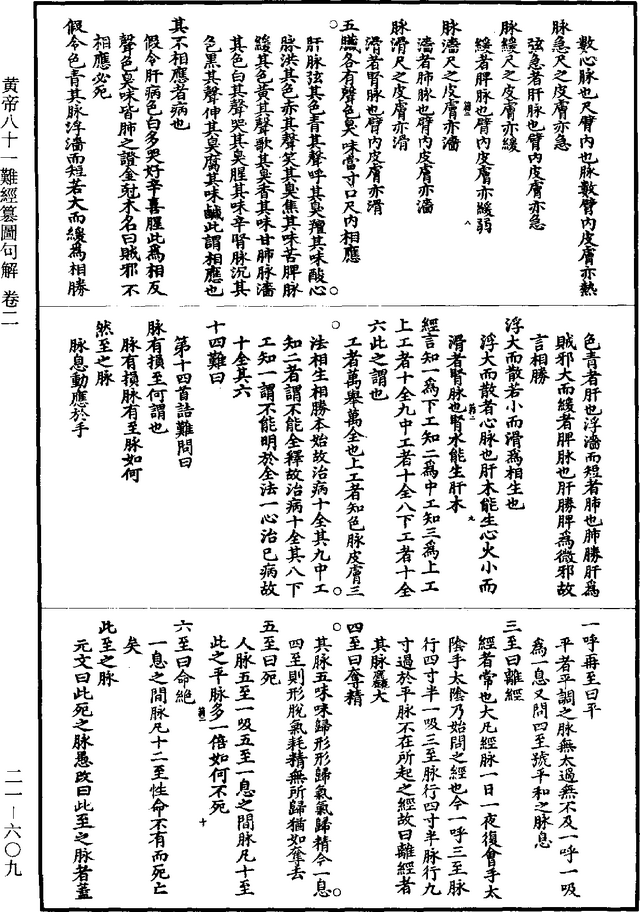 數心脉也尺臂內也脉數臂內皮膚亦熱
脉急尺之皮膚亦急
弦急者肝脉也臂內皮膚亦急
脉緩尺之皮膚亦緩
緩者脾脉也臂內皮膚亦緩弱
脉濇尺之皮膚亦濇
濇者肺脉也臂內皮膚亦濇
脉滑尺之皮膚亦滑
滑者腎脉也臂內皮膚亦滑
五臟各有聲色臭味當寸口尺內相應
肝脉弦其色青其聲呼其臭羶其味酸心
脉洪其色赤其聲笑其臭焦其味苦脾脉
緩其色黃其聲歌其臭香其味甘肺脉濇
其色白其聲哭其臭腥其味辛腎脉沉其
色黑其聲伸其臭腐其味鹹此謂相應也
其不相應者病也
假令肝病色白多哭好辛喜腥此為相反
聲色臭味皆肺之證金尅木名曰賊邪不
相應必死
假令色青其脉浮濇而短若大而緩為相勝
色青者肝也浮濇而短者肺也肺勝肝為
賊邪大而緩者脾脉也肝勝脾為微邪故
言相勝
浮大而散若小而滑為相生也
浮大而散者心脉也肝木能生心火小而
滑者腎脉也腎水能生肝木
經言知一為下工知二為中工知三為上工
上工者十全九中工者十全八下工者十全
六此之謂也
工者萬舉萬全也上工者知色脉皮膚三
法相生相勝本始故治病十全其九中工
知二者謂不能全釋故治病十全其八下
工知一謂不能明於全法一心治已病故
十全其六
十四難曰
第十四首詰難問曰
脉有損至何謂也
脉有損脉有至脉如何
然至之脉
脉息動應於手
一呼再至曰平
平者平調之脉無太過無不及一呼一吸
為一息又問四至號平和之脉息
三至曰離經
經者常也大凡經脉一日一夜復會手太
陰手太陰乃始問之經也今一呼三至脉
行四寸半一吸三至脉行四寸半脉行九
寸過於平脉不在所起之經故曰離經者
其脉麤大
四至曰奪精
其脉五味味歸形形歸氣氣歸精今一息
四至則形脫氣耗精無所歸猶如奪去
五至曰死
人脉五至一吸五至一息之間脉凡十至
此之平脉多一倍如何不死
六至曰命絶
一息之間脉凡十二至性命不有而死亡
矣
此至之脉
元文曰此死之脉愚改曰此至之脉者蓋
黄帝八十一難經纂圖句解 卷二
二一—六〇九